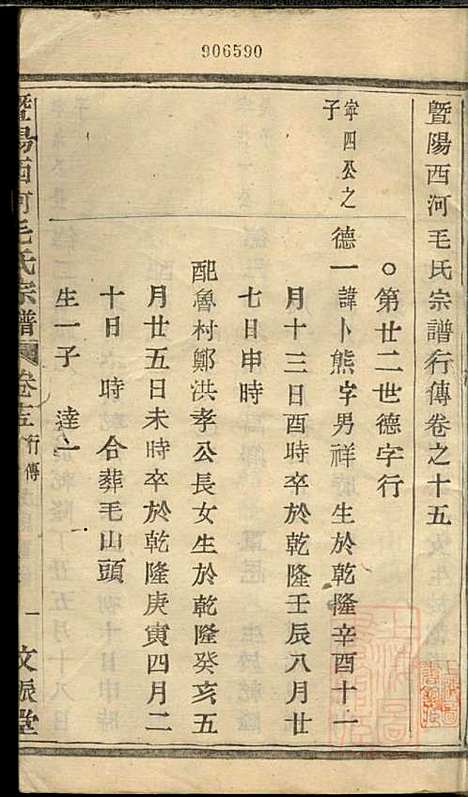 906590
暨陽西河毛氏宗譜行傳卷之十五
○第廿二世德字行
寧四公之子
德一諱卜熊字男祥 生於乾隆辛酉十一
月十三日酉時卒於乾隆壬辰八月廿
七日申時
配魯村鄭洪孝公長女生於乾隆癸亥五
月廿五日未時卒於乾隆庚寅四月二
十日 時合葬毛山頭
生一子 達一
暨陽西河毛氏宗譜 卷十五 行傳 一 文脤堂